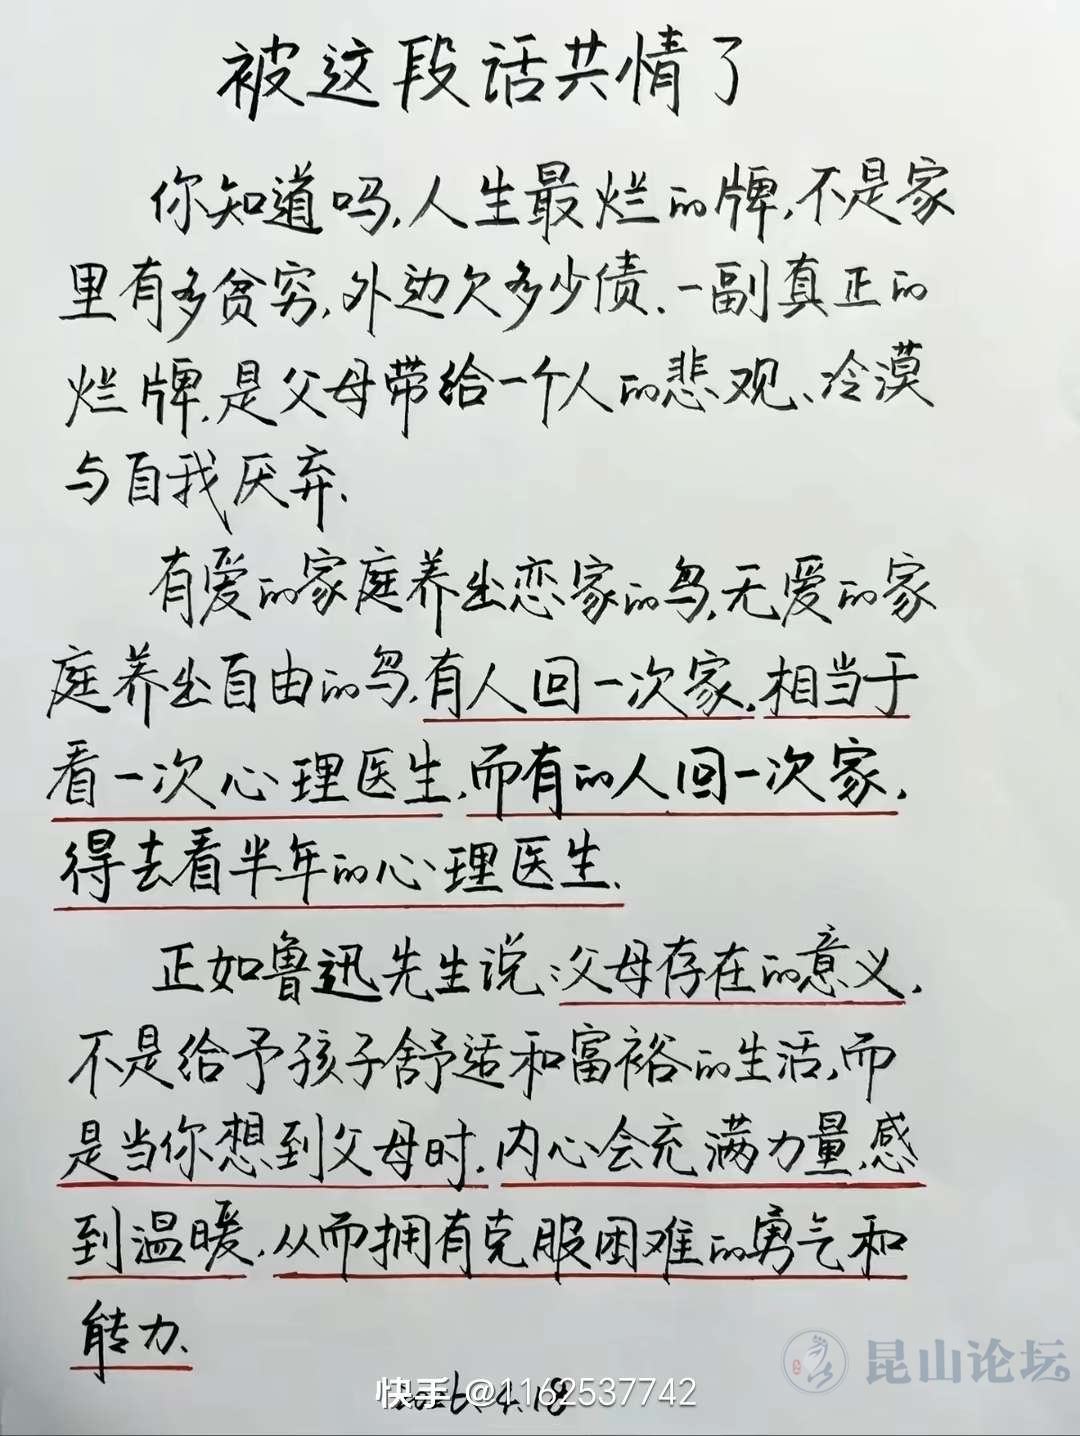 被这段话共情了
你知道吗,人生最烂的牌,不是家
里有多贫穷,外边欠多少债.一副真正的
烂牌.是父母带给一个人的悲观、冷漠
与自我厌弃.
有爱的家庭养出恋家的鸟,无爱的家
庭养出自由的鸟,有人回一次家,相当于
看一次心理医生,而有的人回一次家,
得去看半年的心理医生.
正如鲁迅先生说:父母存在的意义,
不是给予孩子舒适和富裕的生活,而
是当你想到父母时.内心会充满力量,感
到温暖,从而拥有克服困难的勇气和
能力.
快手 @1162537742
4.18
昆山论坛